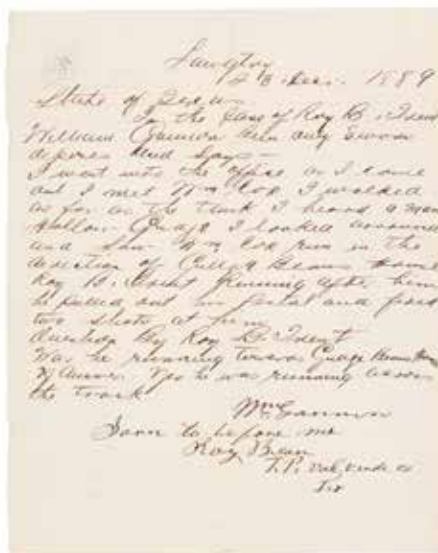 Langtry
28 Dec. 1889
State of Texas
In the Case of Roy B.
William Gannon duly sworn
deposes and Says
I went into the office as I come
out I met Wm Cox I walked
as far as the tank I heard a man
hallow Guage I looked around
and Saw Wm Cox run in the
direction of Guage Beans Home
Roy B. running after him
he pulled out his pistol and fired
two shots at him
Question By Roy B.
Was he running towards Guage Beans
Answer. Yes he was running across
the track
Wm Gannon
Sworn to before me
Roy Bean
J.P. Val Verde Co
Tex